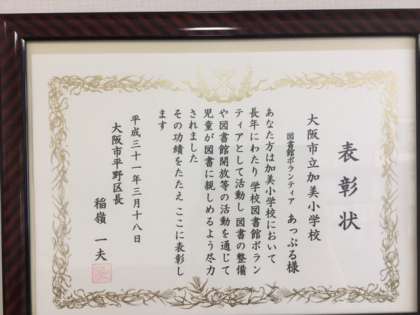 表彰状
大阪市立加美小学校
図書館ボランティア あっぷる様
あなた方は加美小学校において
長年にわたり学校図書館ボラン
ティアとして活動し図書の整備
や図書館開放等の活動を通じて
児童が図書に親しめるよう尽力
されました
その功績をたたえここに表彰し
ます
平成三十一年三月十八日
大阪市平野区長
稲嶺一夫